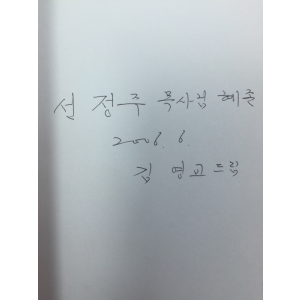 선 정주 목사님 혜존
2006. 6.
김 영교드림